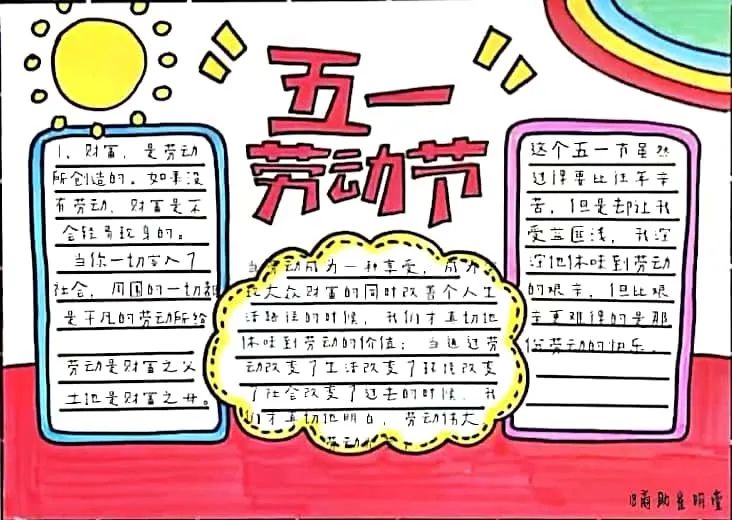 五一
劳动节
1、财富,是劳动
所创造的。如果没
有劳动,财富是不
会轻易现身的。
当你一切言入了
社会,周围的一切都
是平凡的劳动所给
劳动是财富之父
土地是财富之母。
当劳动成为一种享受,成为
大众财富的同时改善个人生
活路径的时候,我们才真切地
体味到劳动的价值;当通过劳
动改变了生活改变了环境改变
了社会改变了过去的时候,我
们才真切地明白,劳动伟大
劳动
这个五一节虽然
过得要比往年辛
苦,但是却让我
受益匪浅,我深
深地体味到劳动
的艰辛,但比艰
辛更难得的是那
份劳动的快乐.